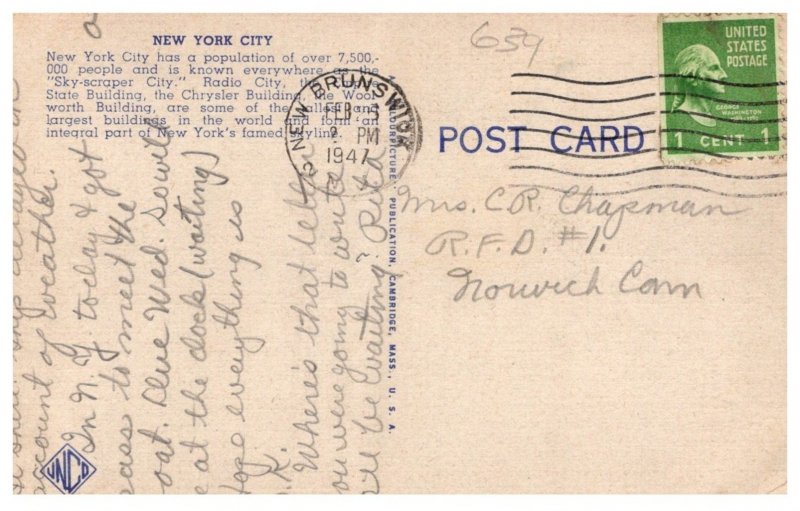 NEW YORK CITY
New York City has a population of over 7,500,-
000 people and is known everywhere as the
"Sky-scraper City." Radio City, the
State Building, the Chrysler Building, the Wool-
worth Building, are some of the tallest and
largest buildings in the world and form an
integral part of New York's famed skyline.
639
NEW BRUNSWICK
FEB
2 PM
1947
UNITED
STATES
POSTAGE
GEORGE
WASHINGTON
1 CENT 1
POST CARD
COLOURPICTURE PUBLICATION, CAMBRIDGE, MASS., U. S. A.
Mrs. C.R. Chapman
R.F.D. #1.
Norwich Conn
a
delayed on
account of weather.
In N.Y. today & got
pass to meet the
oat. Due Wed. So will
e at the dock (waiting)
ope everything is
.K.
Where's that letter
ou were going to write
ll be waiting.